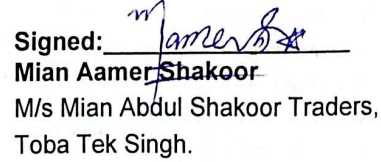 Signed:
Mian Aamer Shakoor
M/s Mian Abdul Shakoor Traders,
Toba Tek Singh.